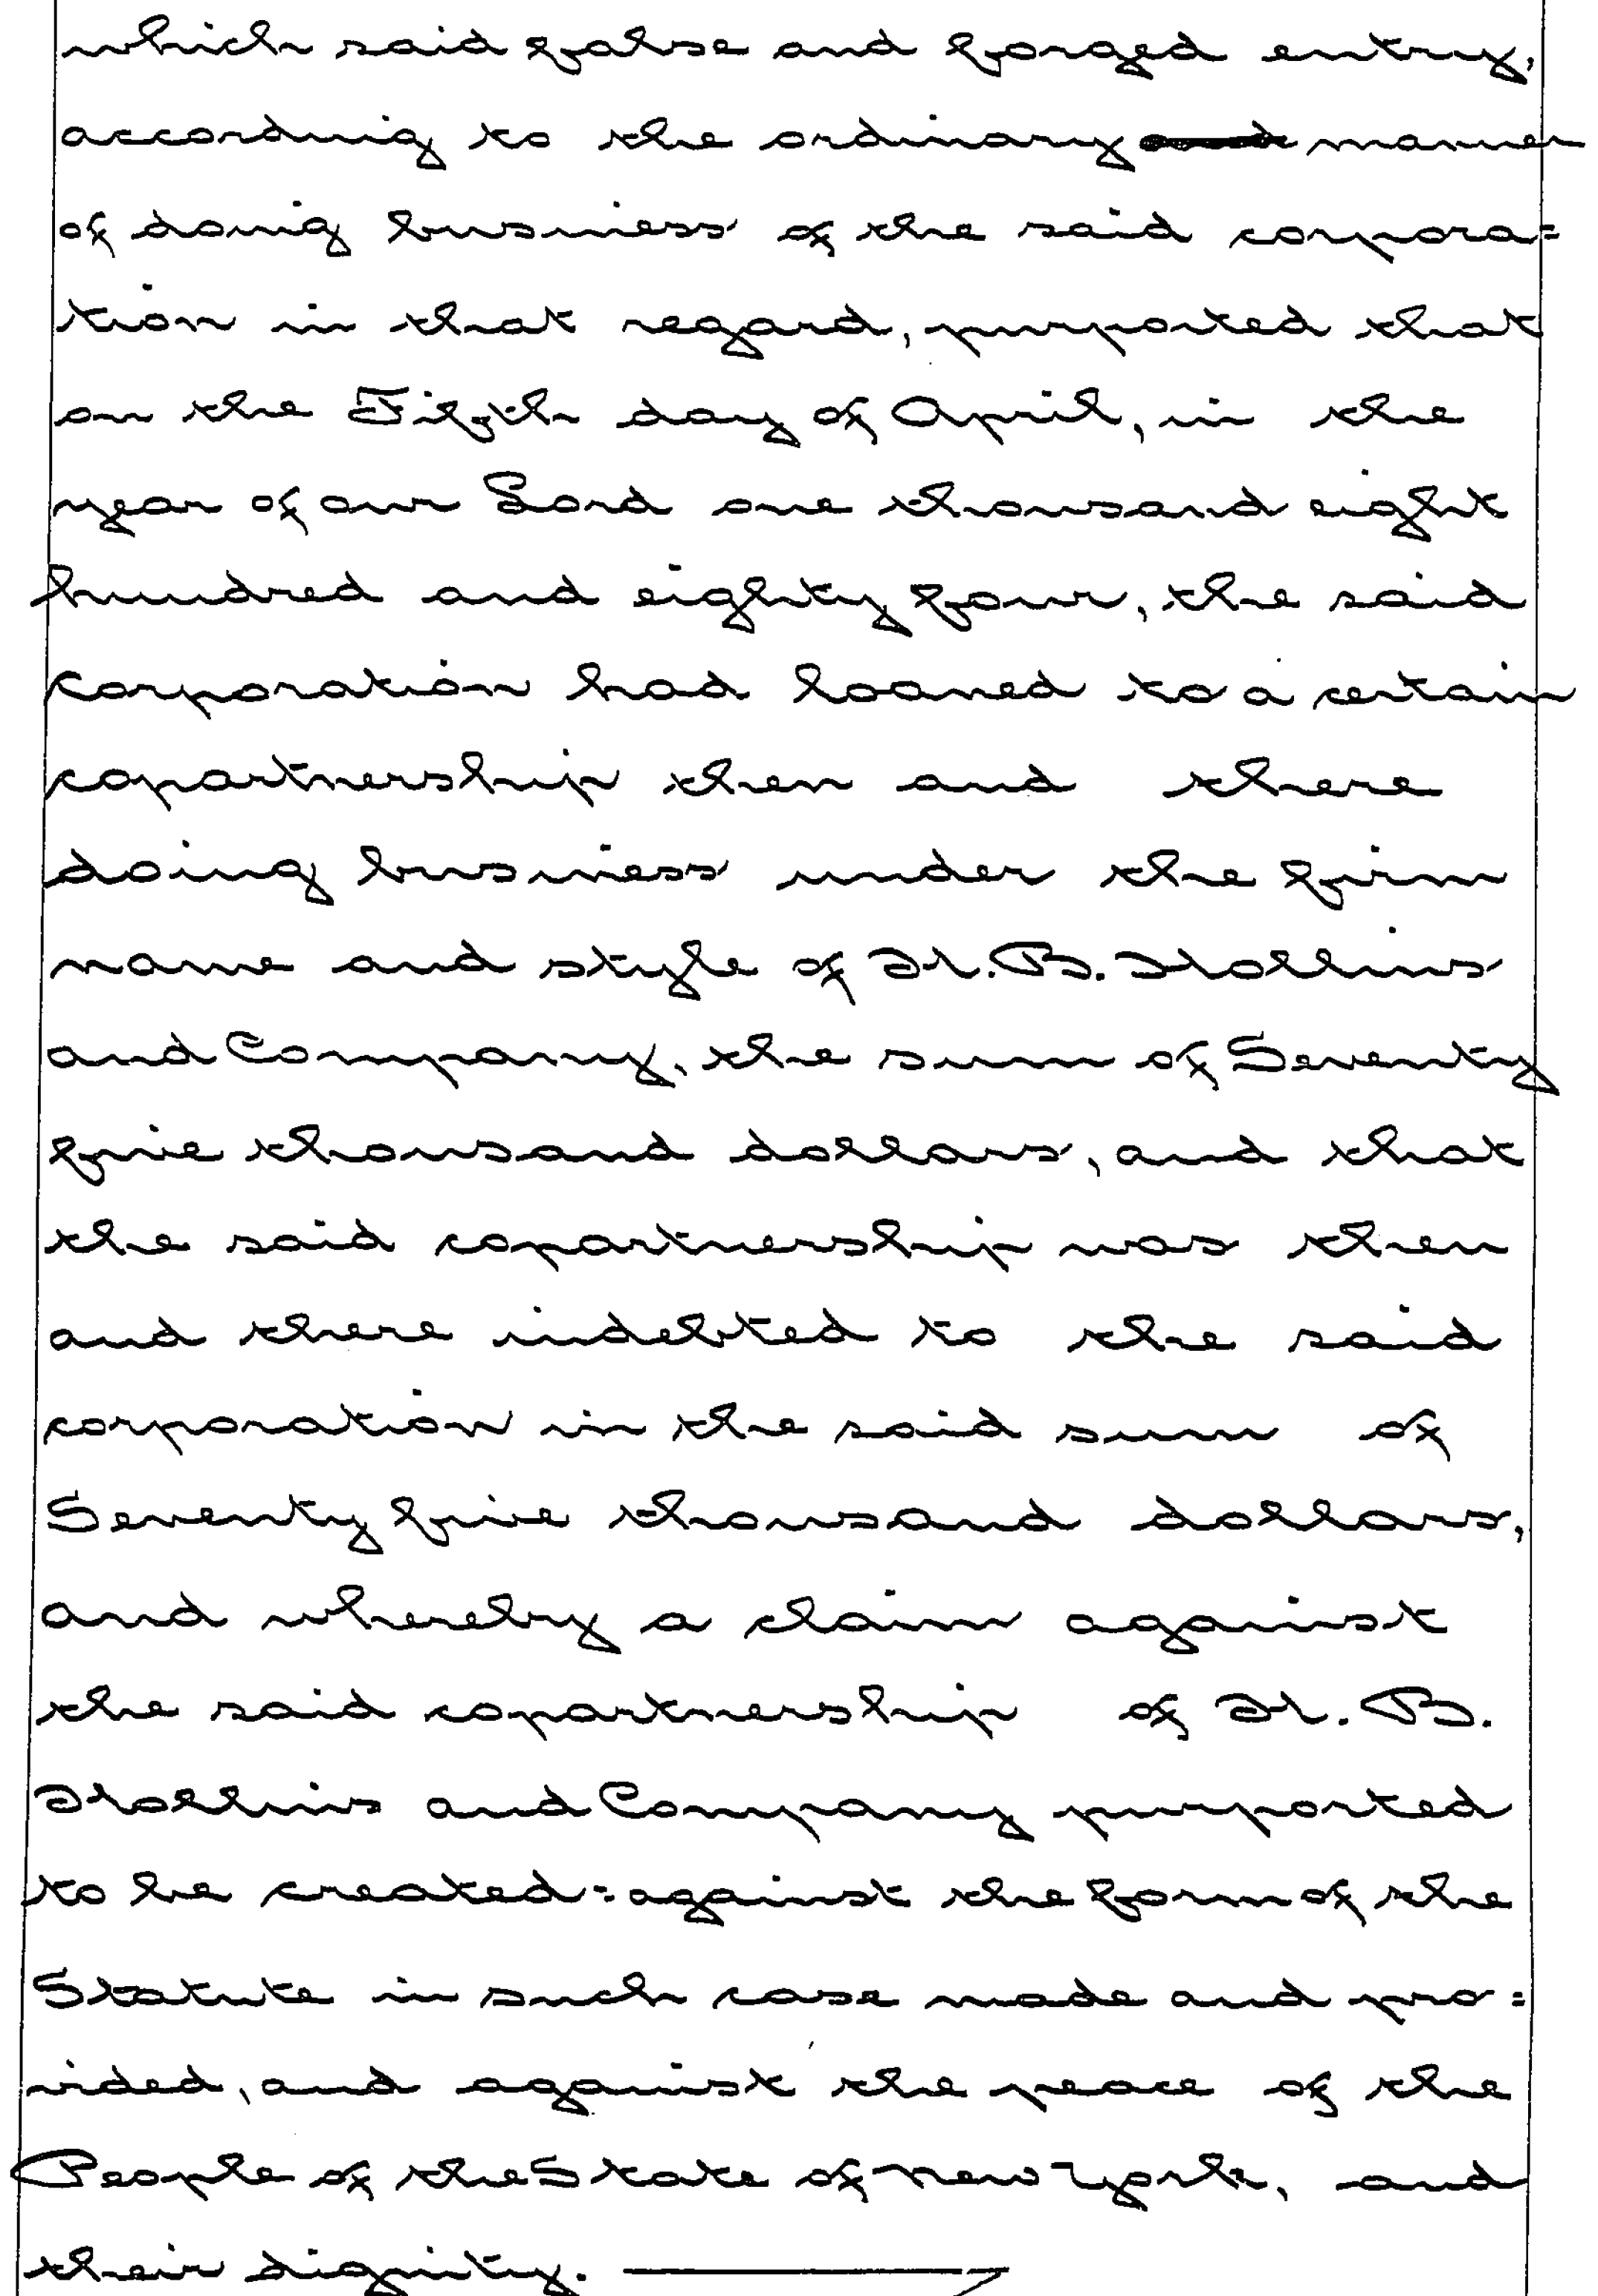 which said false and forged entry,
according to the ordinary manner
of doing business of the said corpora=
tion in that regard, purported that
on the Fifth day of April, in the
year of our Lord one thousand eight
hundred and eighty four, the said
corporation had loaned to a certain
copartnership then and there
doing business under the firm
name and style of H. B. Hollins
and Company, the sum of Seventy
five thousand dollars, and that
the said copartnership was then
and there indebted to the said
corporation in the said sum of
Seventy five thousand dollars,
and whereby a claim against
the said copartnership of H. B.
Hollins and Company purported
to be created: against the form of the
Statute in such case made and pro=
vided, and against the peace of the
People of the State of New York, and
their dignity.